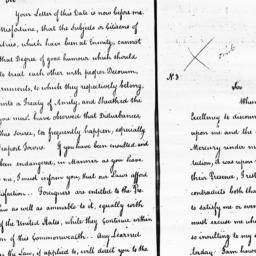 Your Letter of this Date is now before me.
Misfortune, that the Subjects or Citizens of
ntries, which have been at Enmity, cannot
that Degree of good humour which should
to treat each other with proper Decorum,
ernments, to which they respectively belong,
into a Treaty of Amity, and Sheathed the
you must have observed that Disturbances
this source, too frequently happen, especially
Seaport Towns. If you have been insulted and
been endangered, in Manner as you have
to me, I must inform you, that our Laws afford
Satisfaction. Foreigners are entitled to the Pro
Law as well as amenable to it, equally with
of the United States, while they Continue within
on of this Commonwealth. Any Learned
the Law, if applied to, will direct you to the
N. 3
Sir
When
Excellency to discoun
upon me and the
Mercury under m
tution, it was upon
their Presence, I rest
contradicts both tha
to satisfy me or even
must excuse me whe
so insulting to my
today. I am however